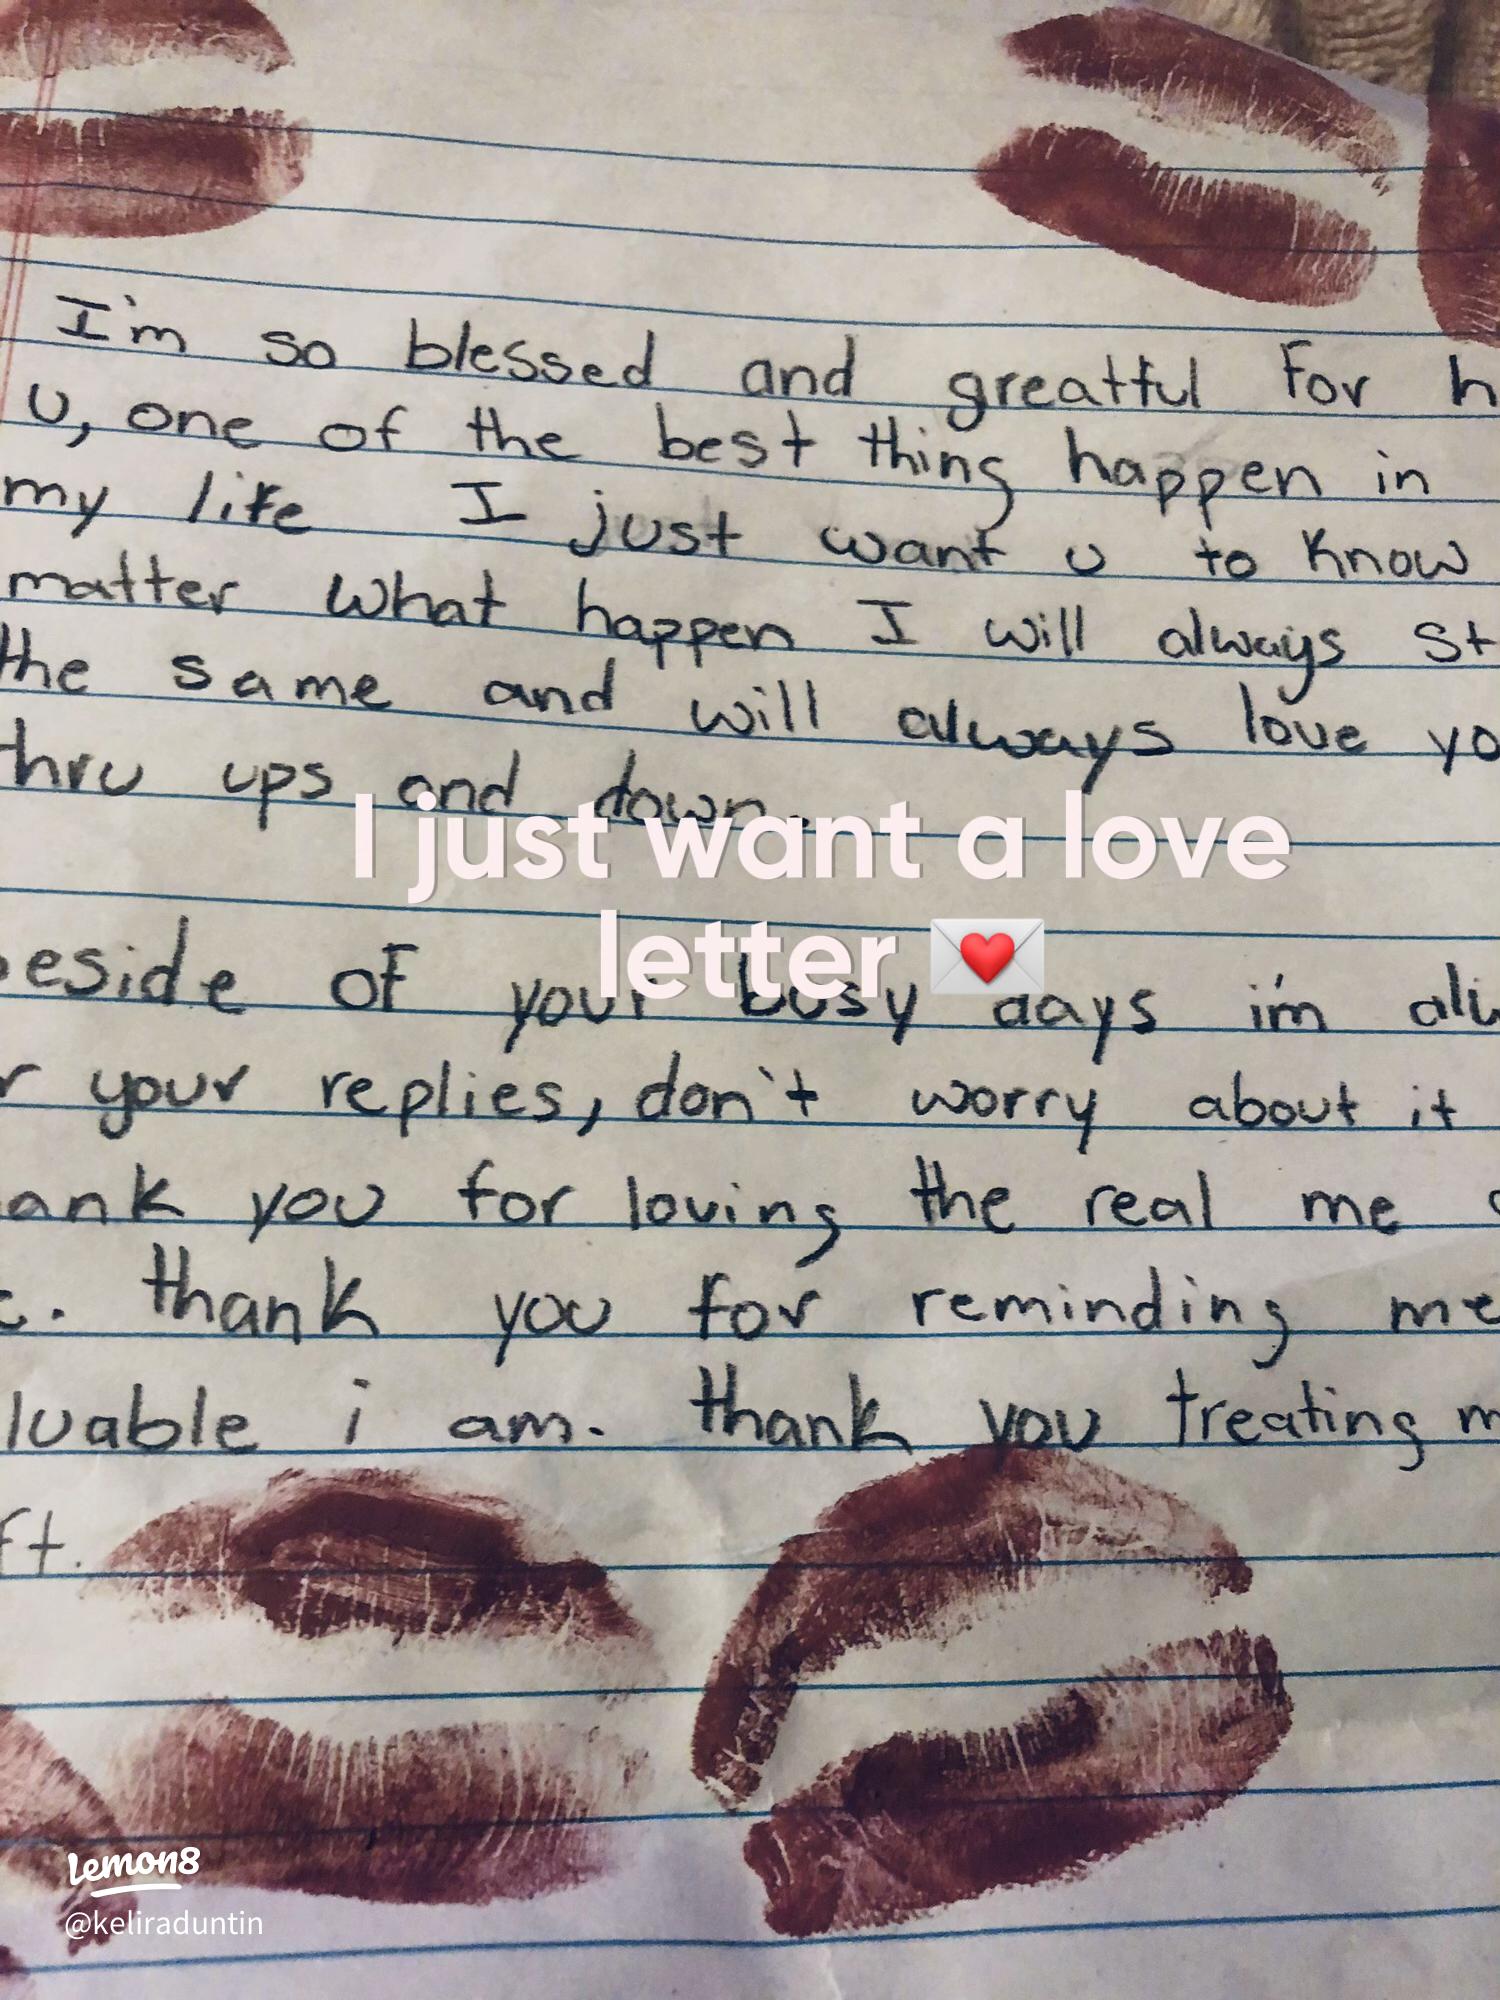 I'm so blessed and greatful For h
U, one of the best thing happen in
my life I just want u to Know
matter what happen I will always st
the same and will always love yo
thru ups and down.
I just want a love
letter 💌
eside of your busy days i'm alw
r your replies, don't worry about it
ank you for loving the real me
c. thank you for reminding me
luable i am. thank you treating m
ft.
Lemon8
@keliraduntin